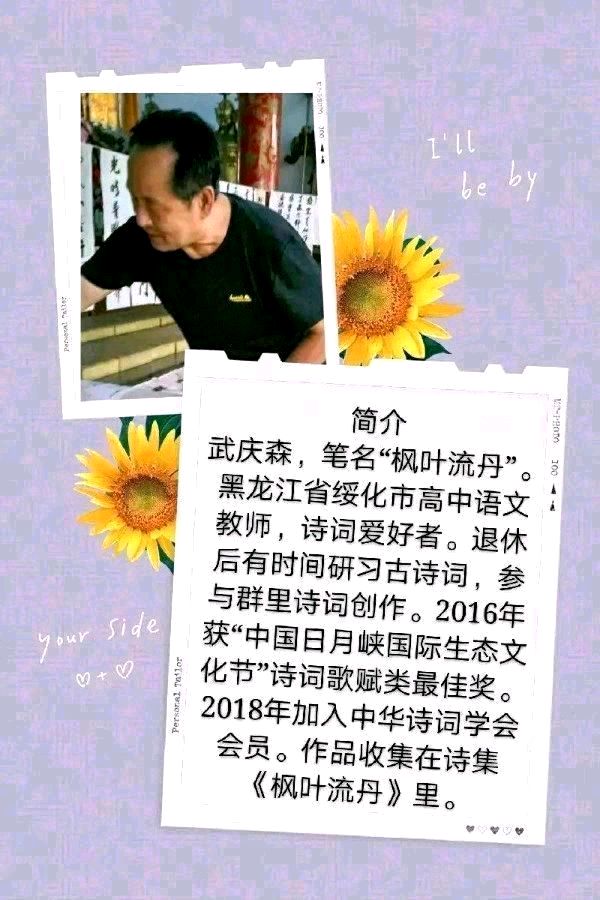 I'll
be by
Personal Tailor
简介
武庆森，笔名“枫叶流丹”。
黑龙江省绥化市高中语文
教师，诗词爱好者。退休
后有时间研习古诗词，参
与群里诗词创作。2016年
获“中国日月峡国际生态文
化节”诗词歌赋类最佳奖。
2018年加入中华诗词学会
会员。作品收集在诗集
《枫叶流丹》里。
your side
Personal Tailor